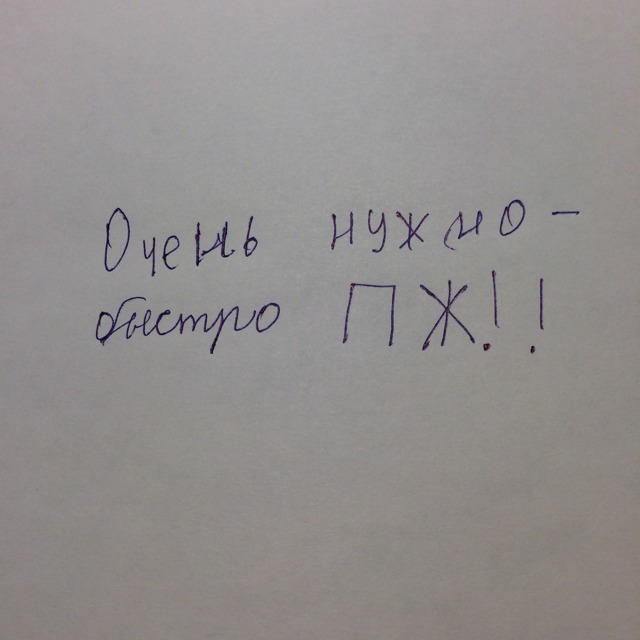 Очень нужно -
быстро ПЖ!!